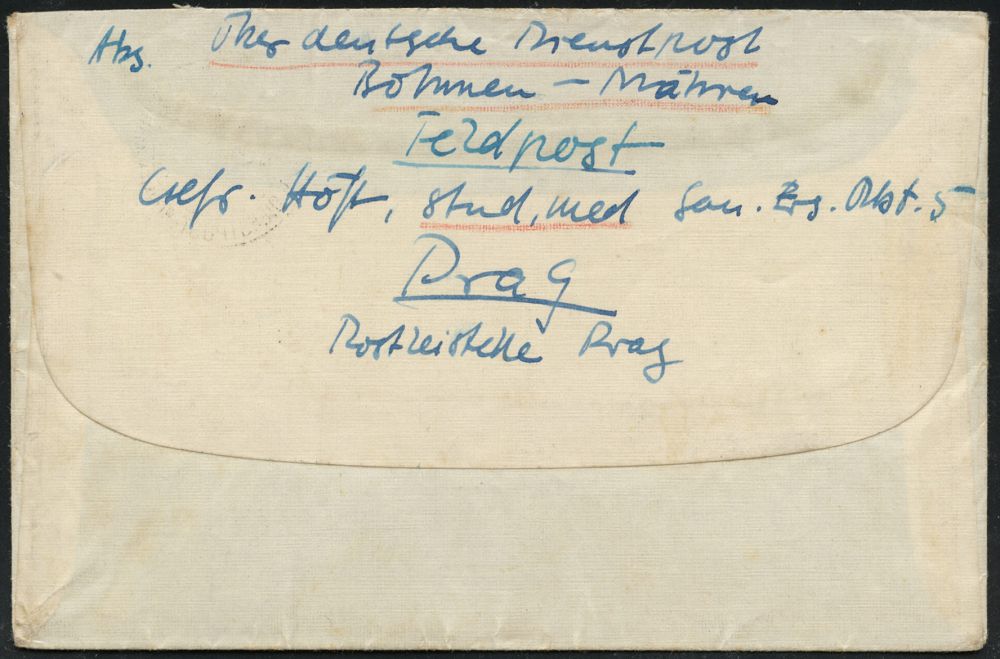 Abs. Über deutsche Dienstpost
Böhmen - Mähren
Feldpost
Gefr. Höft, stud. med San. Ers. Abt. 5
Prag
Postleitstelle Prag